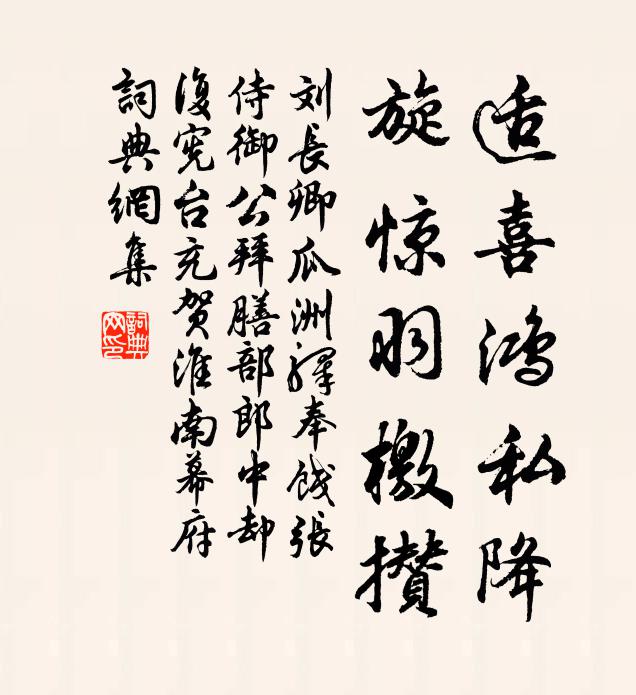 适喜鸿私降
旋惊羽檄攢
刘長卿瓜洲驛奉饯張
侍御公拜膳部郎中却
復宪台充贺淮南幕府
詞典網集
詞典网印